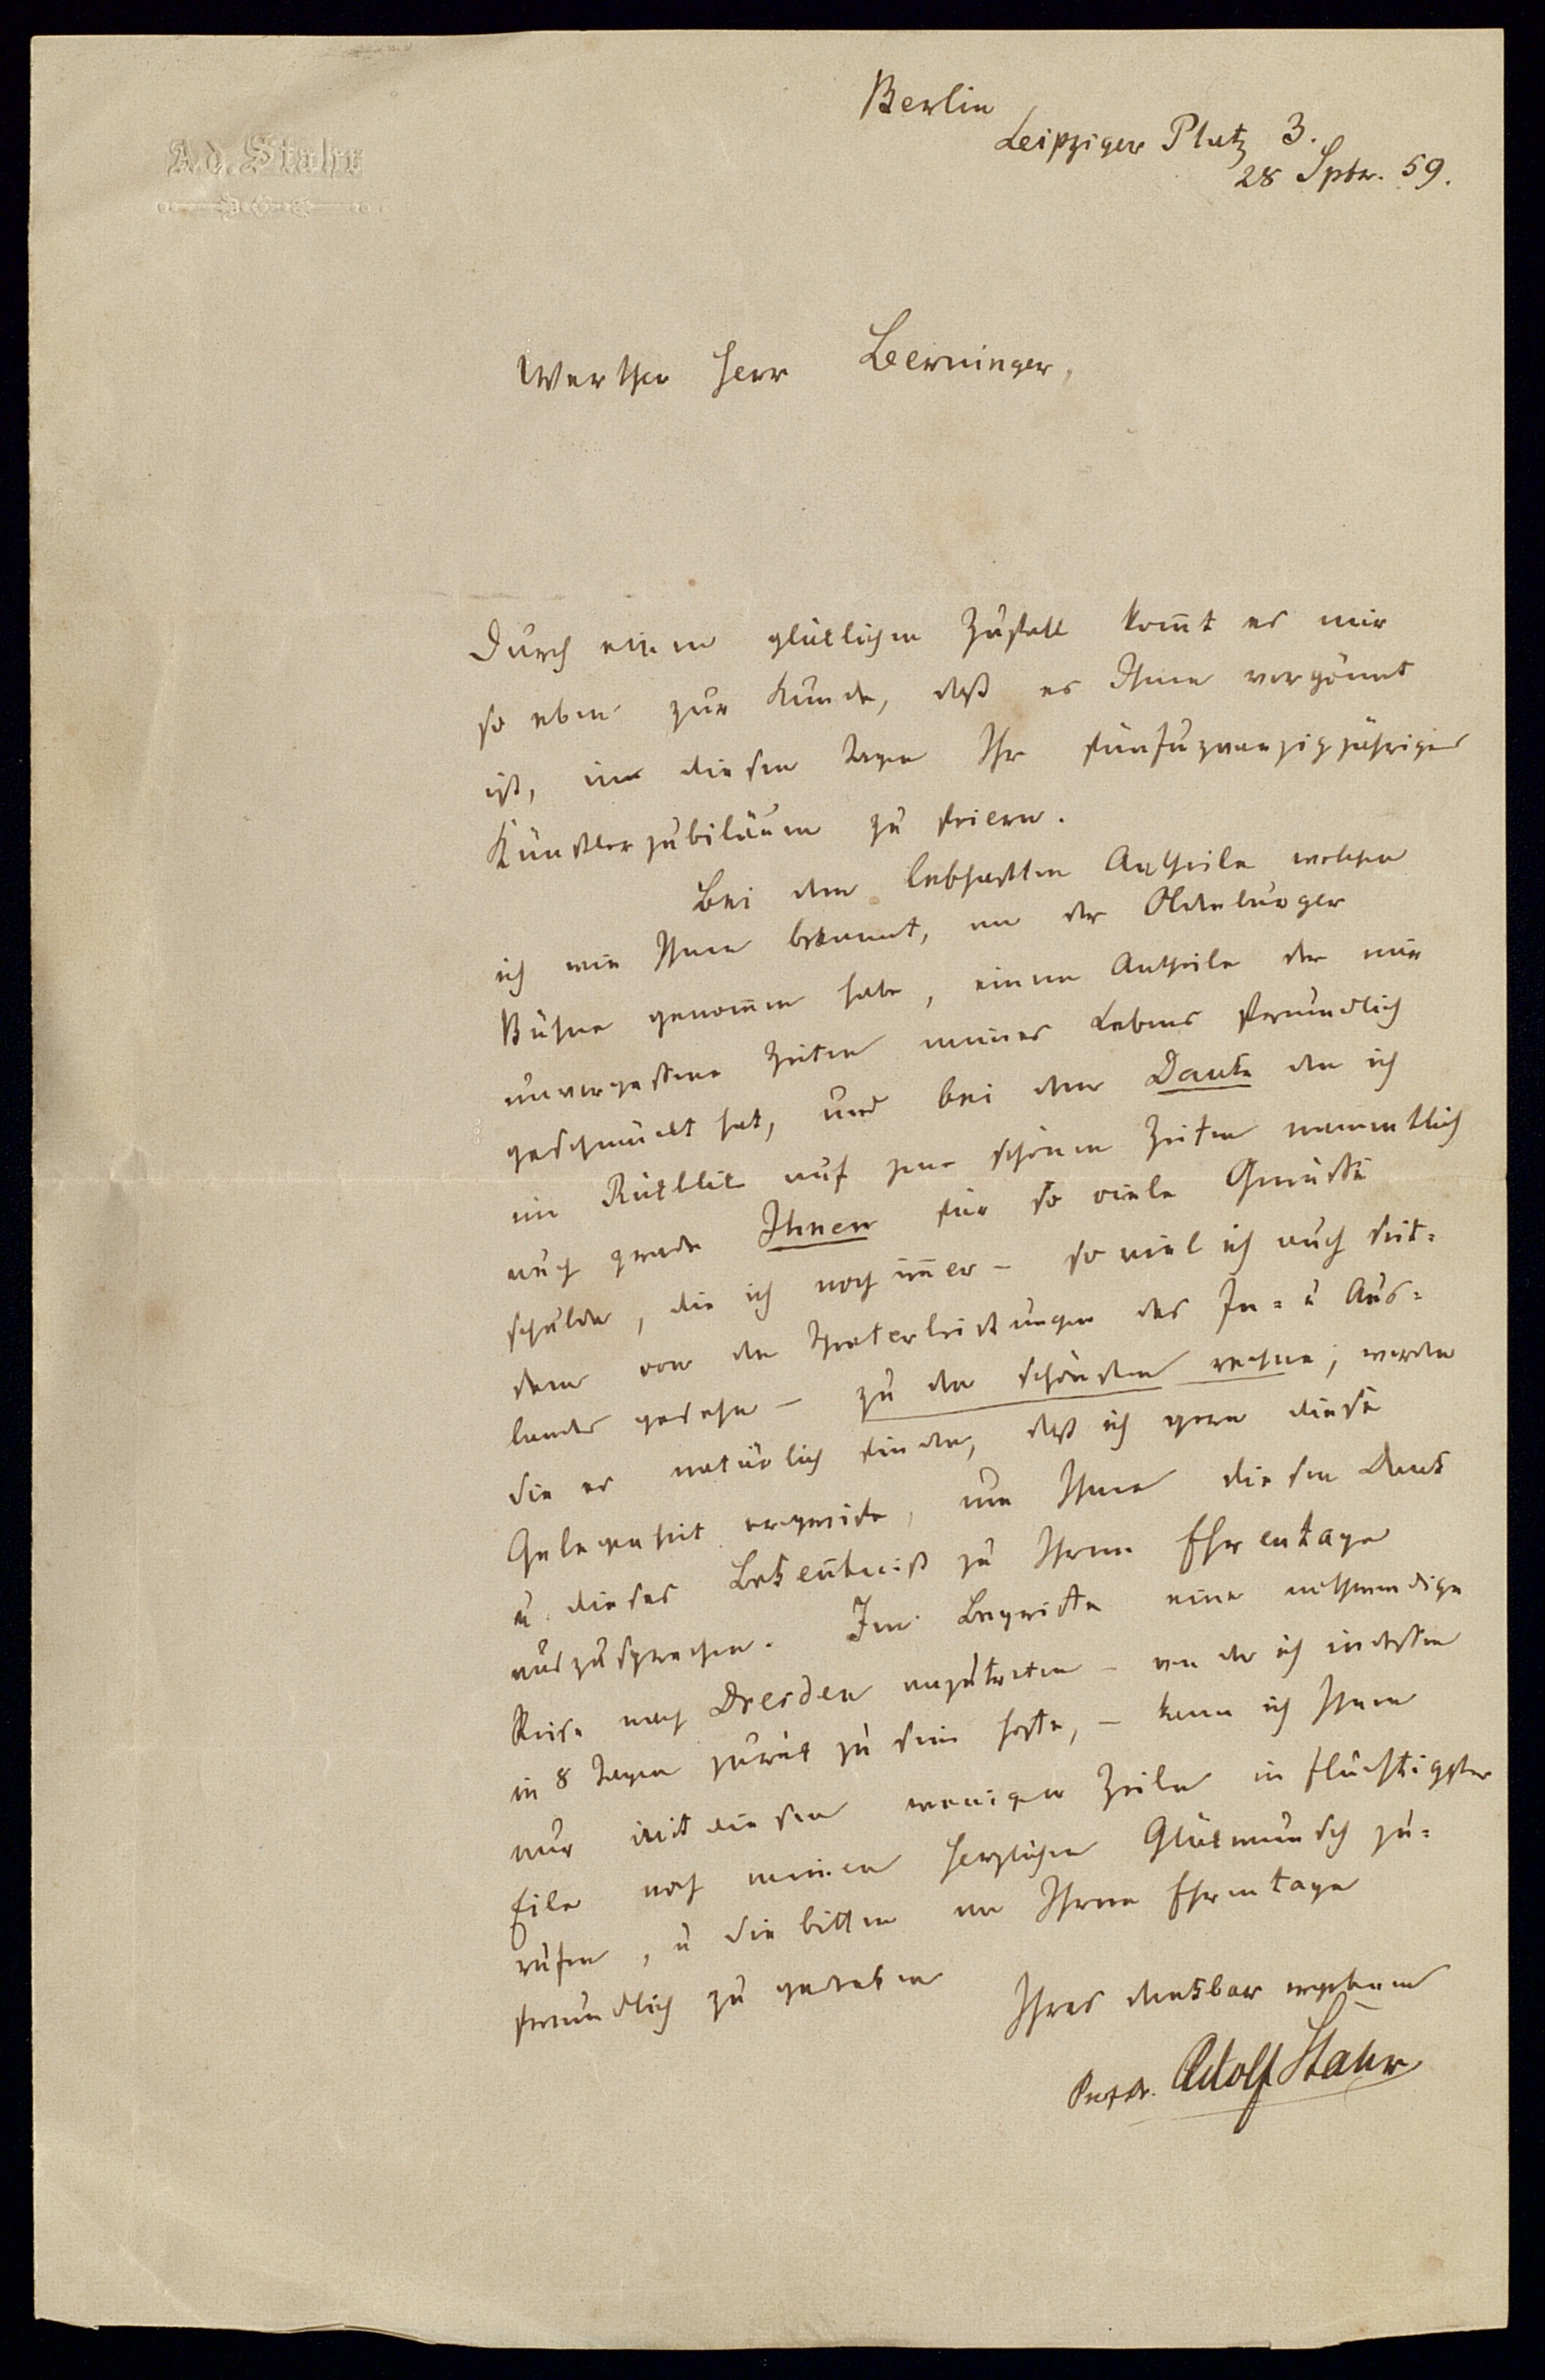 Ad. Stahr
Berlin
Leipziger Platz 3.
28 Sptbr. 59.
Werther Herr Berninger,
Durch einen glücklichen Zufall kom̄t es mir
so eben zur Kunde, daß es Ihnen vergönnt
ist, in diesen Tagen Ihr fünfuzwanzigjähriges
Künstlerjubiläum zu feiern.
Bei dem lebhaften Antheile welchen
ich wie Ihnen bekannt, an der Oldenburger
Bühne genom̄en habe, einem Antheile der mir
unvergessene Zeiten meines Lebens freundlich
geschmückt hat, und bei dem Danke den ich
im Rückblick auf jene schönen Zeiten namentlich
auch grade Ihnen für so viele Genüsse
schulde, die ich noch im̄er – so viel ich auch seit-
dem von den Theaterleistungen des In- u Aus-
landes gesehn – zu den schönsten rechne, werden
Sie es natürlich finden, daß ich gern diese
Gelegenheit ergreife, um Ihnen diesen Dank
u dieses Bekeñtniß zu Ihrem Ehrentage
auszusprechen. Im Begriffe eine nothwendige
Reise nach Dresden anzutreten – von der ich indessen
in 8 Tagen zurück zu sein hoffe, – kann ich Ihnen
nur mit diesen wenigen Zeilen in flüchtigster
Eile noch meinen herzlichen Glückwunsch zu-
rufen, u Sie bitten an Ihrem Ehrentage
freundlich zu gedenken
Ihres dankbar ergebenen
Profr. Adolf Stahr